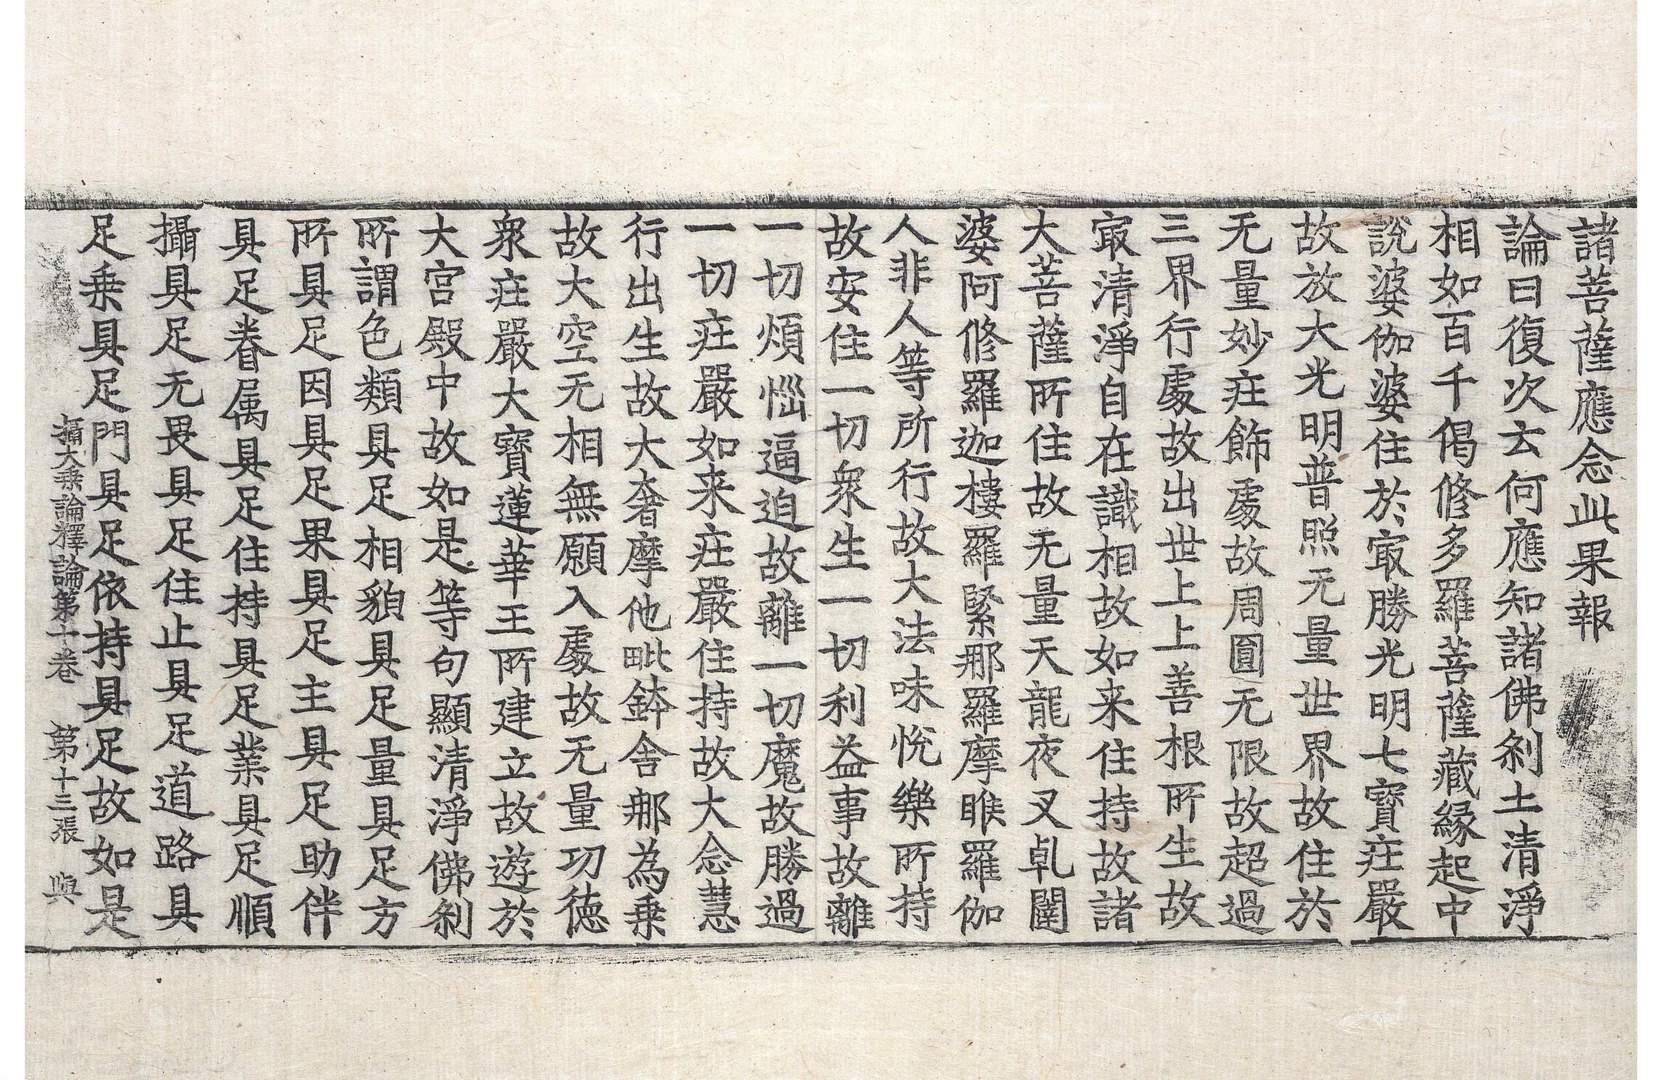 諸菩薩應念此果報
論曰復次云何應知諸佛刹土清淨
相如百千偈修多羅菩薩藏縁起中
說婆伽婆住於㝡勝光明七寳莊嚴
故放大光明普照无量世界故住於
无量妙莊飾處故周圓无限故超過
三界行處故出世上上善根所生故
㝡清淨自在識相故如来住持故諸
大菩薩所住故无量天龍夜叉乹闥
婆阿修羅迦樓羅緊那羅摩睺羅伽
人非人等所行故大法味悅樂所持
故安住一切衆生一切利益事故離
一切煩惱逼迫故離一切魔故勝過
一切莊嚴如来莊嚴住持故大念慧
行出生故大奢摩他毗鉢舍那為乗
故大空无相無願入處故无量功徳
衆莊嚴大寳蓮華王所建立故遊於
大宮殿中故如是等句顯清淨佛刹
所謂色類具足相貌具足量具足方
所具足因具足果具足主具足助伴
具足眷属具足住持具足業具足順
攝具足无畏具足住止具足道路具
足乗具足門具足依持具足故如是
攝大乗論釋論第十卷　第十三張　與